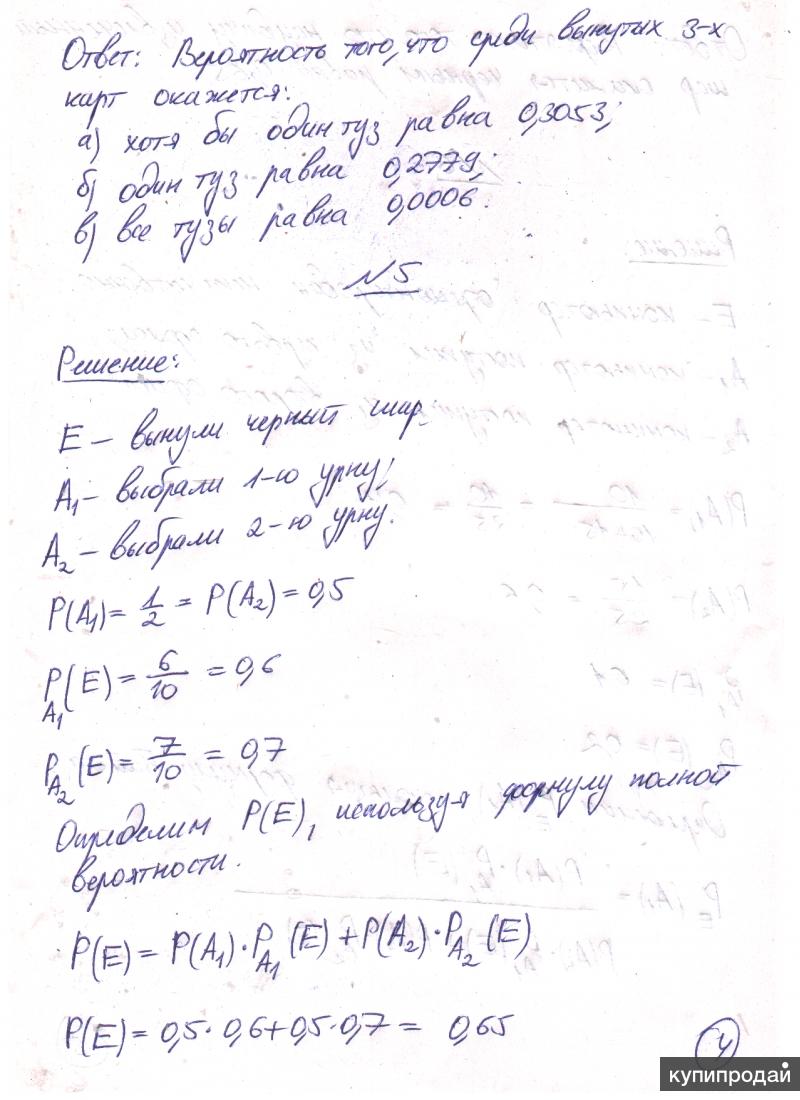 Ответ: Вероятность того, что среди вынутых 3-х
карт окажется:
а) хотя бы один туз равна 0,3053;
б) один туз равна 0,2779;
в) все тузы равна 0,0006.
№5
Решение:
E – вынули черный шар
A₁ – выбрали 1-ю урну;
A₂ – выбрали 2-ю урну.
P(A₁) = 1/2 = P(A₂) = 0,5
P_A₁(E) = 6/10 = 0,6
P_A₂(E) = 7/10 = 0,7
Определим P(E), используя формулу полной
вероятности.
P(E) = P(A₁)·P_A₁(E) + P(A₂)·P_A₂(E)
P(E) = 0,5·0,6+0,5·0,7 = 0,65
4
купипродай